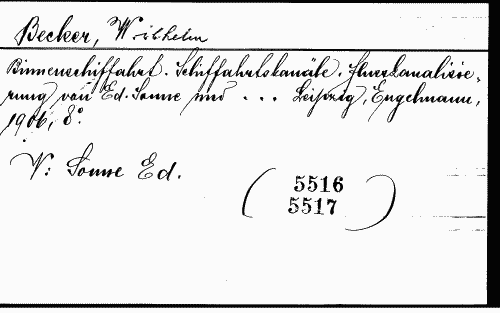 Becker, Wilhelm
Binnenschiffahrt. Schiffahrtskanäle. Flusskanalisie-
rung von Ed. Sonne und ... Leipzig, Engelmann,
1906, 8°.
V: Sonne Ed.
(5516
5517)